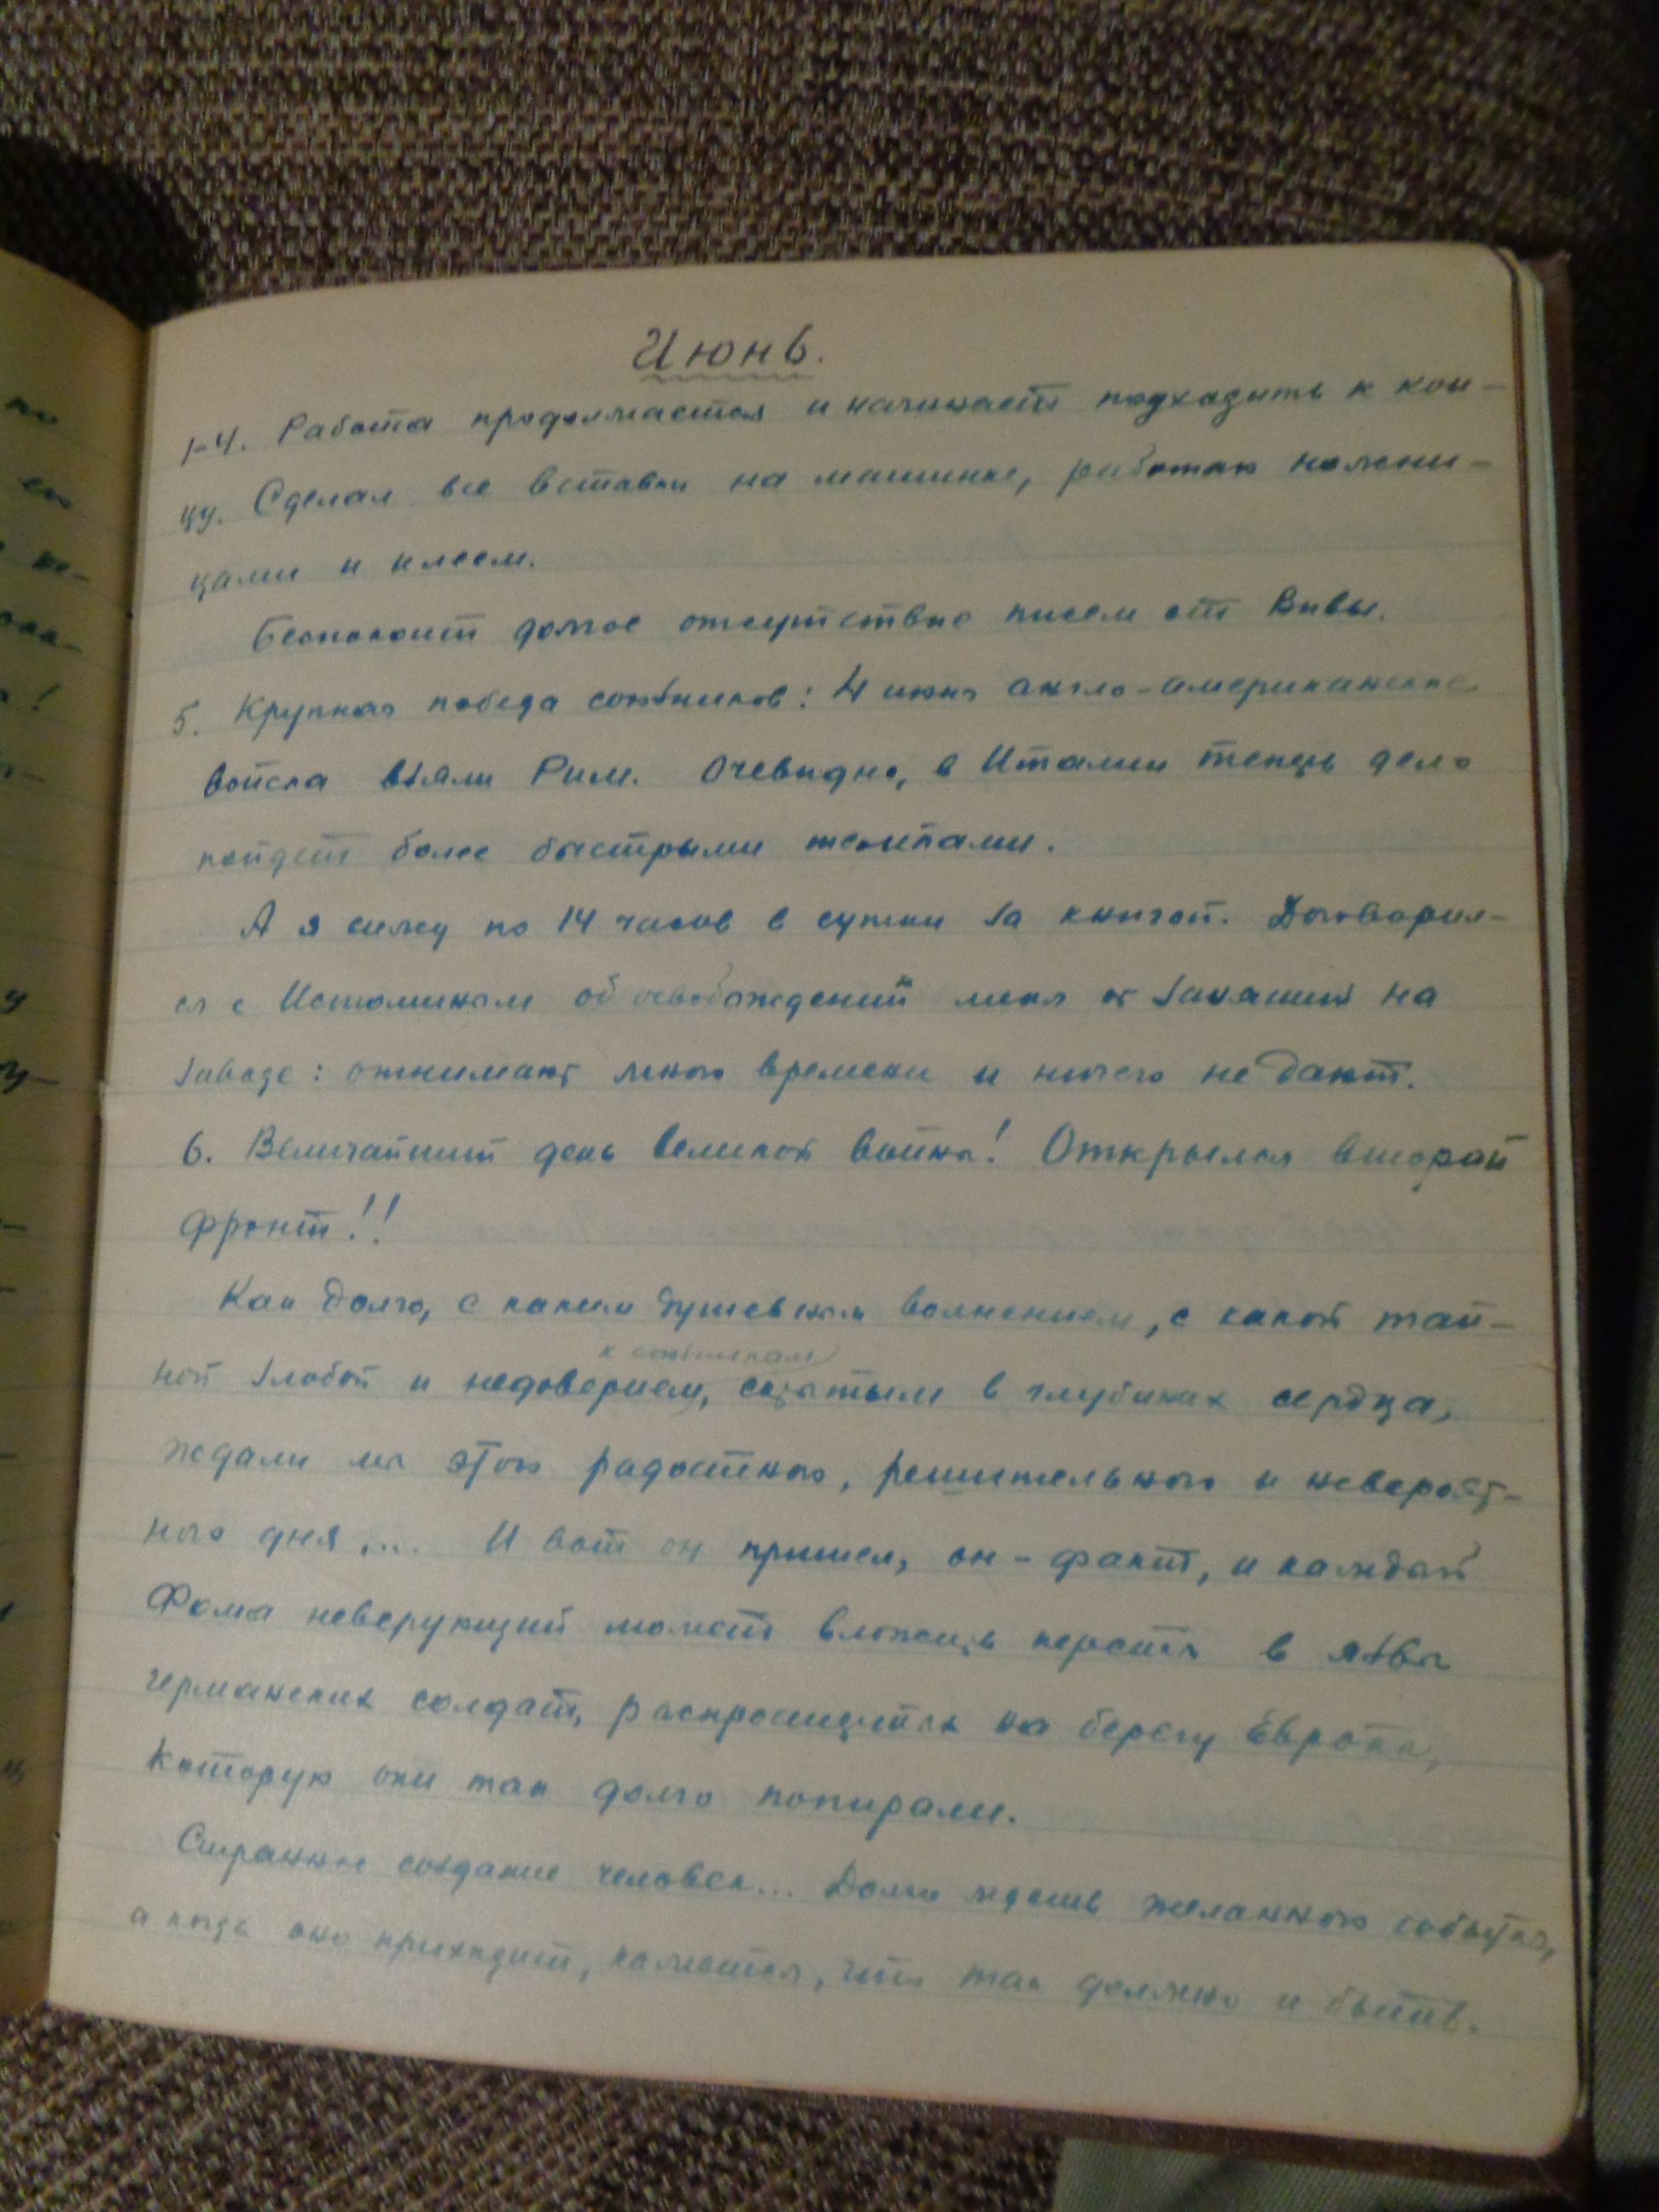 Июнь.
1-4. Работа продолжается и начинает подходить к кон-
цу. Сделал все вставки на машинке, работаю ножни-
цами и клеем.
Беспокоит долгое отсутствие писем от Вивы.
5. Крупная победа союзников: 4 июня англо-американские
войска взяли Рим. Очевидно, в Италии теперь дело
пойдет более быстрыми темпами.
А я сижу по 14 часов в сутки за книгой. Договорил-
ся с Истоминым об освобождений меня от занятий на
заводе: отнимают много времени и ничего не дают.
6. Величайший день великой войны! Открылся второй
фронт!!
Как долго, с каким душевным волнением, с какой тай-
ной злобой и недоверием к союзникам, спрятыми в глубинах сердца,
ждали мы этого радостного, решительного и невероят-
ного дня.... И вот он пришел, он - факт, и каждый
Фома неверующий может вложить персты в язвы
германских солдат, распростертых на берегу Европы,
которую они так долго попирали.
Странное создание человек... Долго ждешь желанного события,
а когда оно приходит, кажется, что так должно и быть.